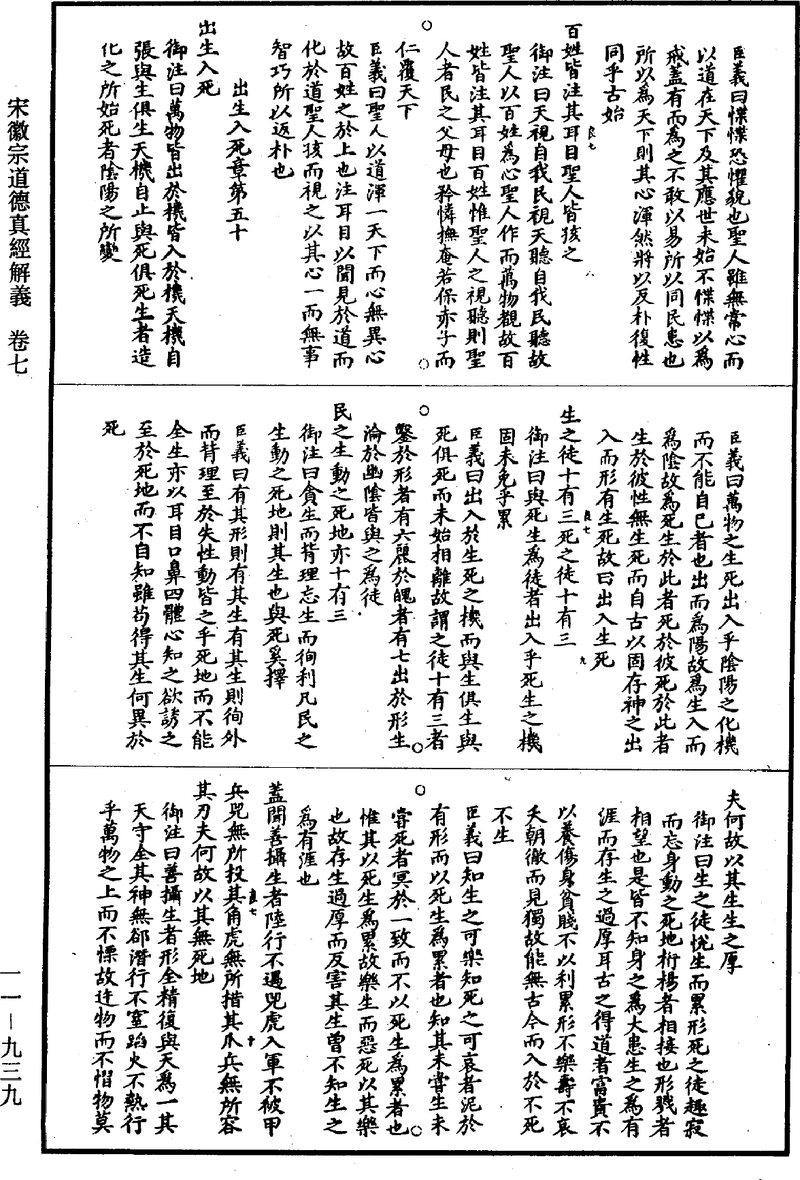 宋徽宗道德真經解義　卷七
一一—九三九
臣義曰惵惵恐懼貌也聖人雖無常心而
以道在天下及其應世未始不惵惵以為
戒蓋有而為之不敢以易所以同民患也
所以為天下則其心渾然將以反朴復性
同乎古始
百姓皆注其耳目聖人皆孩之
御注曰天視自我民視天聽自我民聽故
聖人以百姓為心聖人作而萬物覩故百
姓皆注其耳目百姓惟聖人之視聽則聖
人者民之父母也矜憐撫奄若保赤子而
仁覆天下
臣義曰聖人以道渾一天下而心無異心
故百姓之於上也注耳目以聞見於道而
化於道聖人孩而視之以其心一而無事
智巧所以返朴也
出生入死章第五十
出生入死
御注曰萬物皆出於機皆入於機天機自
張與生俱生天機自止與死俱死生者造
化之所始死者陰陽之所變
臣義曰萬物之生死出入乎陰陽之化機
而不能自已者也出而為陽故為生入而
為陰故為死生於此者死於彼死於此者
生於彼性無生死而自古以固存神之出
入而形有生死故曰出入生死
良七
生之徒十有三死之徒十有三
九
御注曰與死生為徒者出入乎死生之機
固未免乎累
臣義曰出入於生死之機而與生俱生與
死俱死而未始相離故謂之徒十有三者
鑿於形者有六麗於魄者有七出於形生
淪於幽陰皆與之為徒
民之生動之死地亦十有三
御注曰貪生而背理忘生而徇利凡民之
生動之死地則其生也與死奚擇
臣義曰有其形則有其生有其生則徇外
而背理至於失性動皆之乎死地而不能
全生亦以耳目口鼻四體心知之欲誘之
至於死地而不自知雖苟得其生何異於
死
夫何故以其生生之厚
御注曰生之徒恱生而累形死之徒趣寂
而忘身動之死地桁楊者相接也形戮者
相望也是皆不知身之為大患生之為有
涯而存生之過厚耳古之得道者富貴不
以養傷身貧賤不以利累形不樂壽不哀
夭朝徹而見獨故能無古今而入於不死
不生
臣義曰知生之可樂知死之可哀者泥於
有形而以死生為累者也知其未嘗生未
嘗死者冥於一致而不以死生為累者也
惟其以死生為累故樂生而惡死以其樂
也故存生過厚而反害其生曾不知生之
為有涯也
蓋聞善攝生者陸行不遇兕虎入軍不被甲
兵兕無所投其角虎無所措其爪兵無所容
良七
十
其刃夫何故以其無死地
御注曰善攝生者形全精復與天為一其
天守全其神無郤潛行不窒蹈火不熱行
乎萬物之上而不慄故迕物而不慴物莫